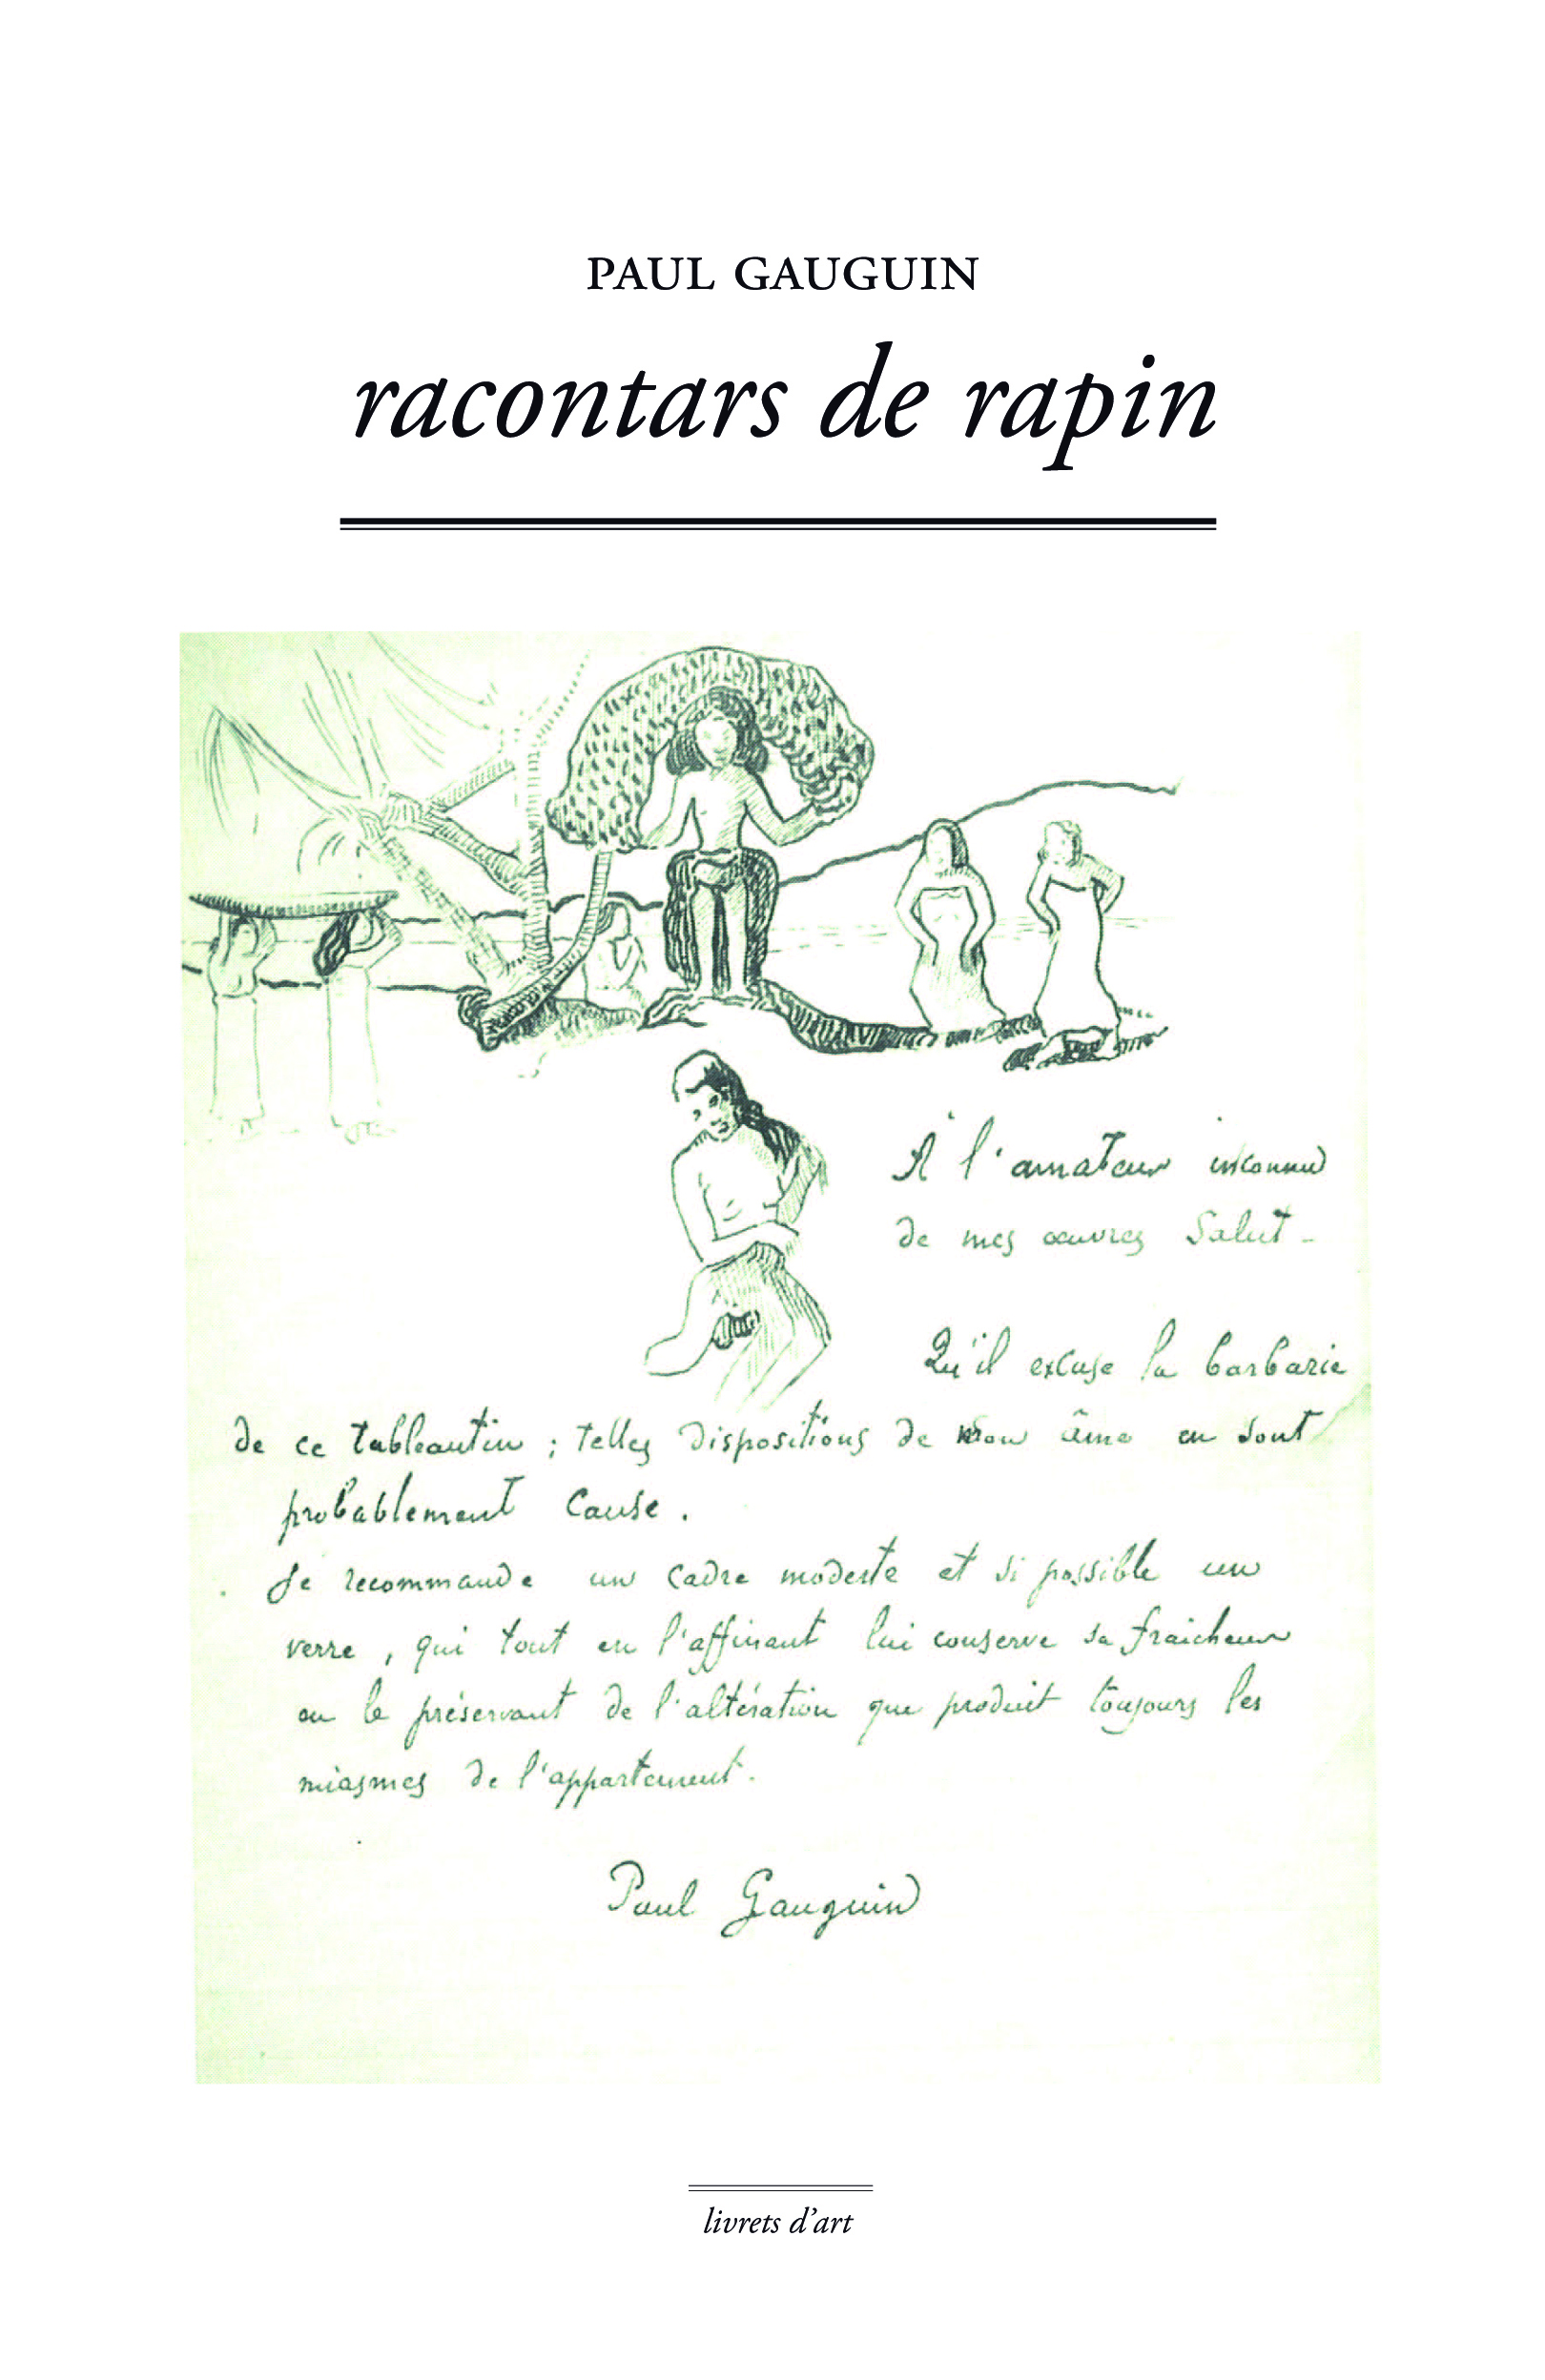 PAUL GAUGUIN
racontars de rapin
A l'amateur inconnu
de mes œuvres Salut -
Qu'il excuse la barbarie
de ce tableautin ; telles dispositions de mon âme en sont
probablement cause .
Je recommande un cadre modeste et si possible un
verre , qui tout en l'affinant lui conserve sa fraicheur
en le préservant de l'altération que produit toujours les
miasmes de l'appartement .
Paul Gauguin
livrets d'art